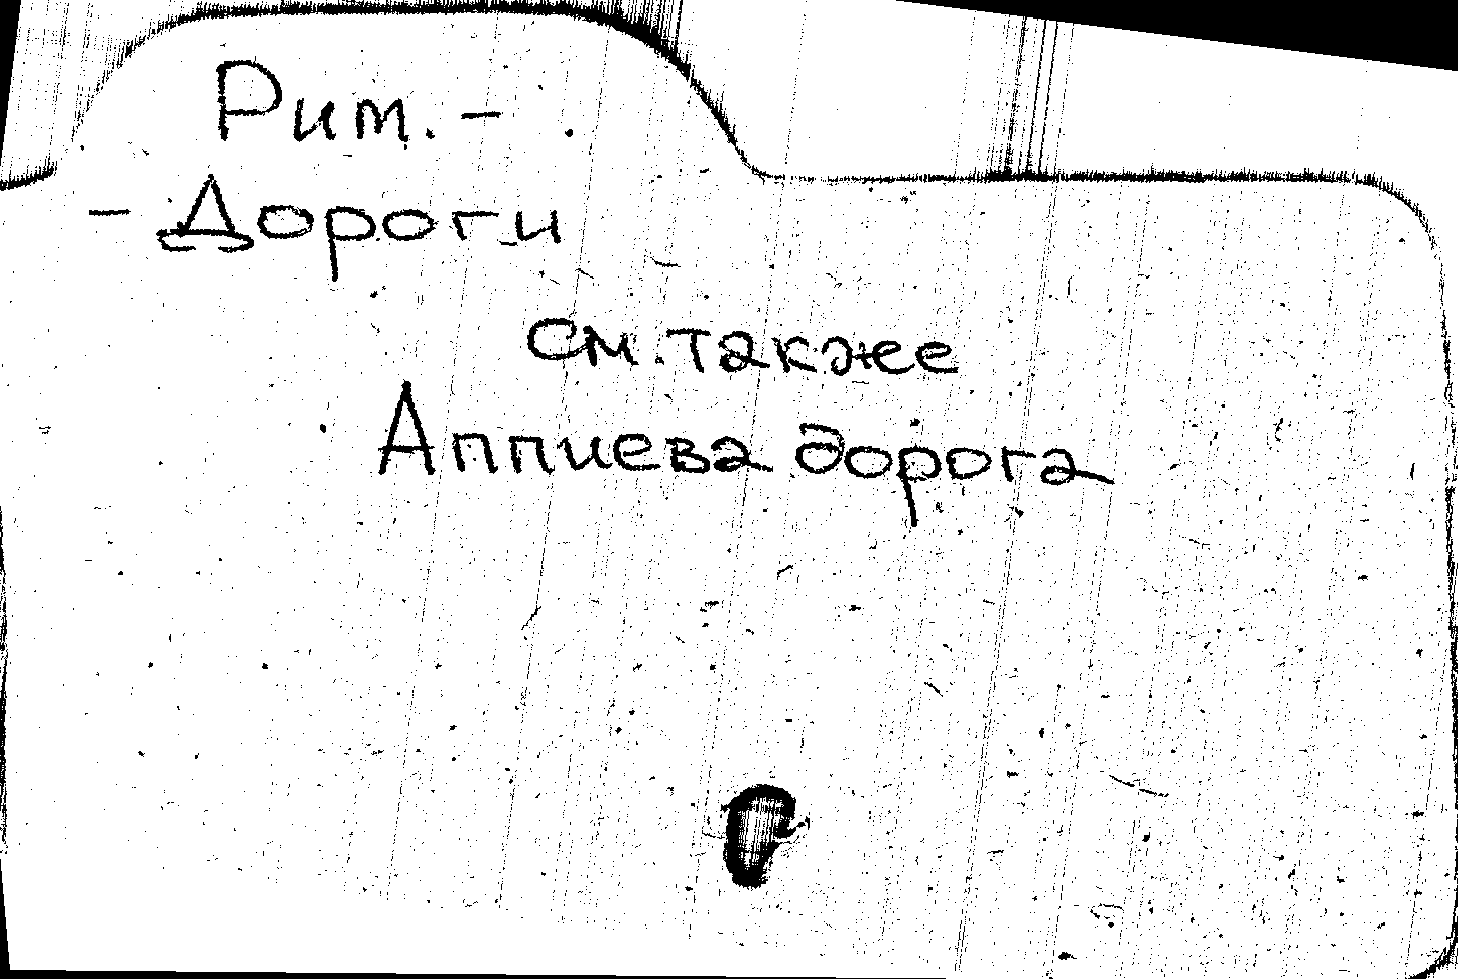 Рим. -
- Дороги
См. также
Аппиева дорога